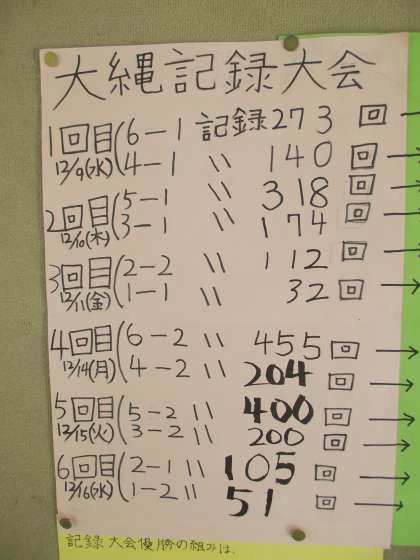 大縄記録大会
1回目 6-1 記録273回→
12/9(水) 4-1 〃 140回→
2回目 5-1 〃 318回→
12/10(木) 3-1 〃 174回→
3回目 2-2 〃 112回→
12/11(金) 1-1 〃 32回→
4回目 6-2 〃 455回→
12/14(月) 4-2 〃 204回→
5回目 5-2 〃 400回→
12/15(火) 3-2 〃 200回→
6回目 2-1 〃 105回→
12/16(水) 1-2 〃 51回→
記録大会優勝の組みは、